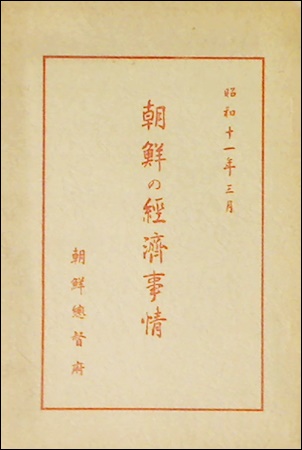 昭和十一年三月
朝鮮の經濟事情
朝鮮總督府